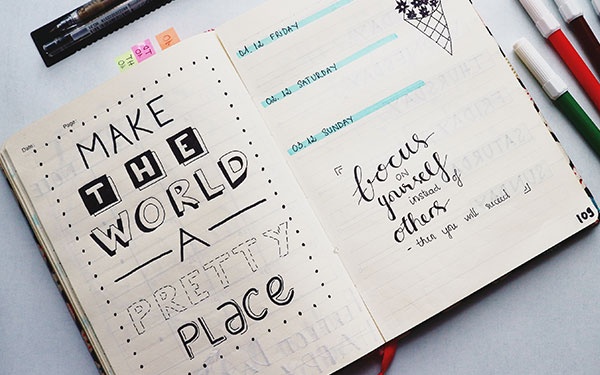 Date: Page:
MAKE
THE
WORLD
A
PRETTY
PLACE
01.12 FRIDAY
02.12 SATURDAY
03.12 SUNDAY
focus
on
yourself
instead of
others
then you will succeed
109